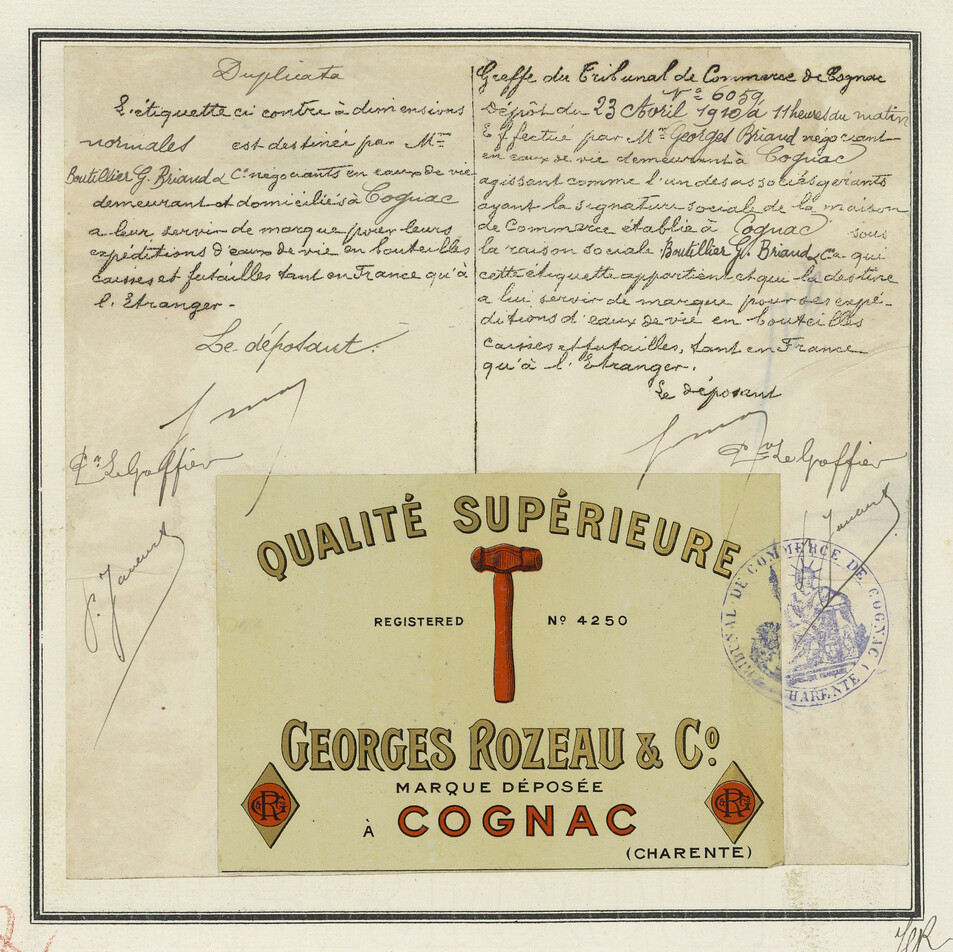 Duplicata
L'étiquette ci contre à dimensions
normales est destinée par Mrs
Boutillier G. Briand & Ce négociants en eaux de vie
demeurant et domiciliés à Cognac
a leur servir de marque pour leurs
expéditions d'eaux de vie en bouteilles
caisses et futailles tant en France qu'à
l'Etranger.
Le déposant.
Pon Le Goffier
Greffe du Tribunal de Commerce de Cognac
No 6059
Dépôt du 23 Avril 1910 à 11 heures du matin
Effectué par Mr Georges Briand négociant
en eaux de vie demeurant à Cognac
agissant comme l'un des associés gérants
ayant la signature sociale de la maison
de Commerce établie à Cognac sous
la raison sociale Boutillier G. Briand & Ce qui
cette étiquette appartient et qui la destine
a lui servir de marque pour ses expé-
ditions d'eaux de vie en bouteilles
caisses et futailles, tant en France
qu'à l'Etranger.
Le déposant
Pon Le Goffier
TRIBUNAL DE COMMERCE DE COGNAC (CHARENTE)
QUALITÉ SUPÉRIEURE
REGISTERED No 4250
GEORGES ROZEAU & Co.
MARQUE DÉPOSÉE
À COGNAC
(CHARENTE)